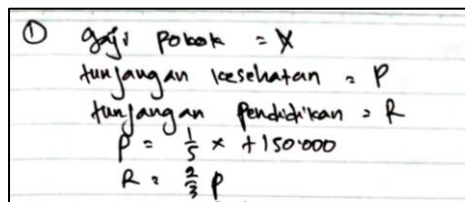 ① gaji pokok = X
tunjangan kesehatan = P
tunjangan Pendidikan = R
P = 1/5 x + 150.000
R = 2/3 P